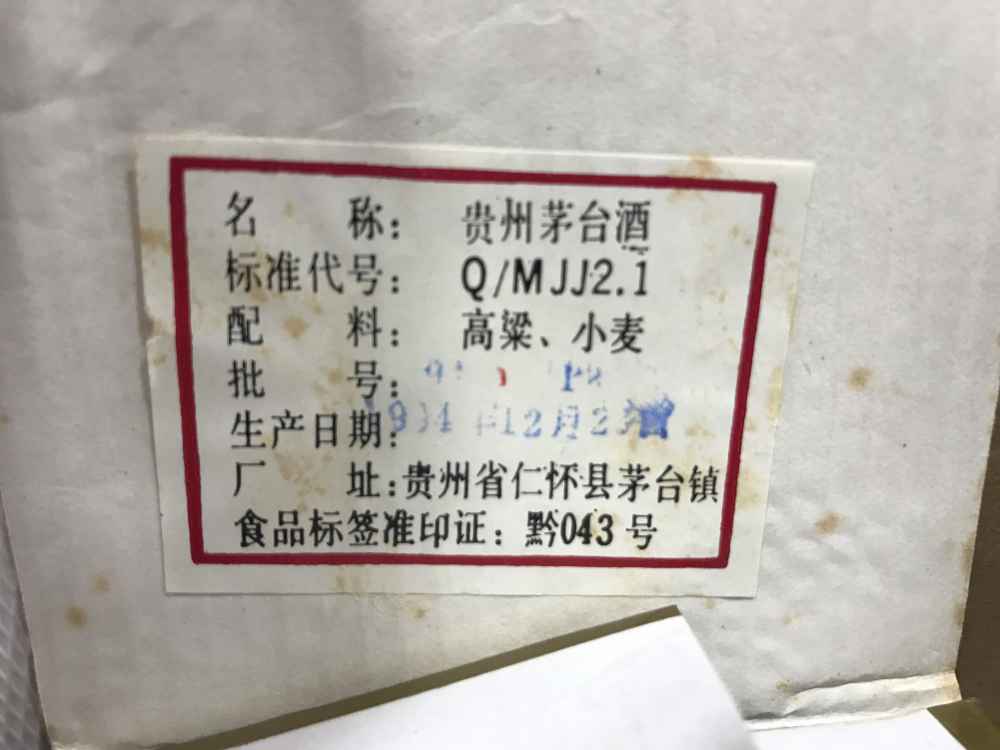 名 称: 贵州茅台酒
标准代号: Q/MJJ2.1
配 料: 高粱、小麦
批 号:
生产日期: 年12月
厂 址:贵州省仁怀县茅台镇
食品标签准印证: 黔043号